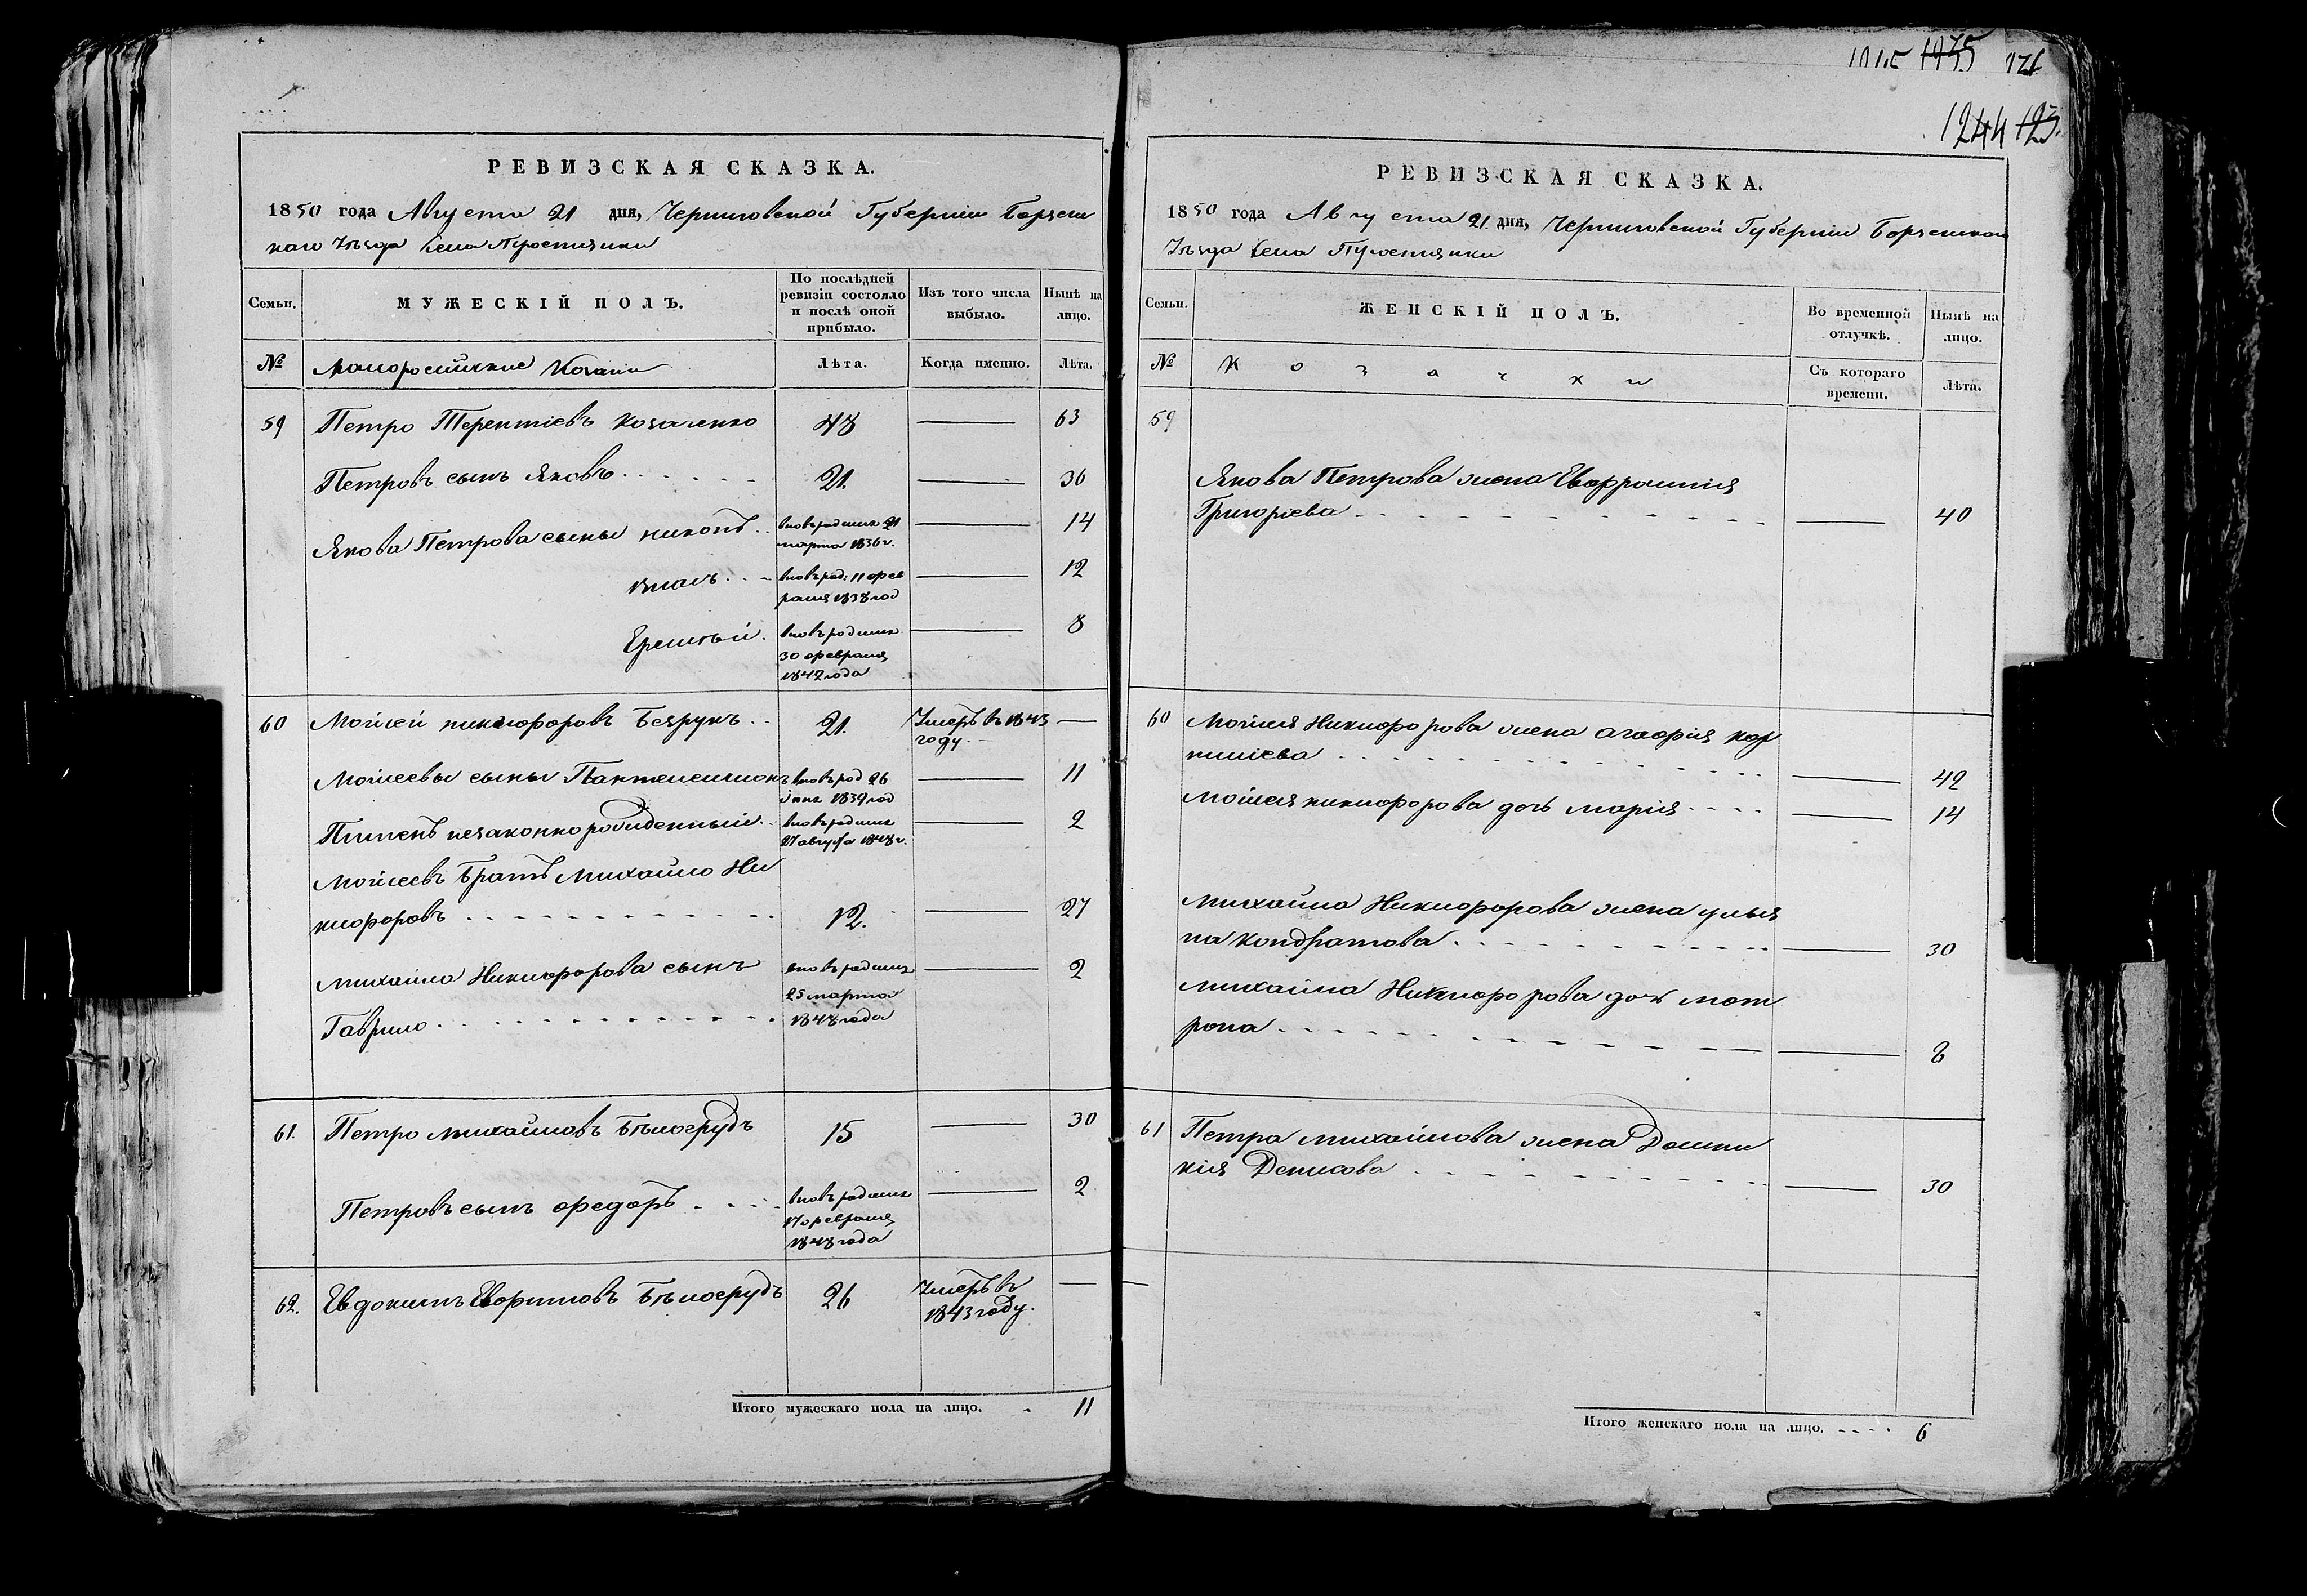 РЕВИЗСКАЯ СКАЗКА.
1850 года Августа 21 дня, Черниговской Губернии Борзен
скаго Уѣзда Села
Семьи.
МУЖЕСКІЙ ПОЛЪ.
По послѣдней
ревизіи состояло
и послѣ оной
прибыло.
Изъ того числа
выбыло.
Нынѣ на
лицо.
№
Малоросійскіе Козаки
Лѣта.
Когда именно.
Лѣта.
59 Петро Терентіевъ Козаченко 48 63
Петровъ сынъ Яковъ 21. 36
Якова Петрова сыны Никонъ 14
вновь родился 21
марта 1836 г.
Власъ 12
вновь род: 11 фев
раля 1838 год
Еремѣй 8
вновь родился
30 февраля
1842 года
60 Мойсей Никифоровъ Безрукъ 21. Умеръ в 1843
году
Мойсеевы сыны Пантелеимонъ вновь род 26 11
1839 год
Пименъ незаконнорожденный вновь родился 2
27 августа 1848 г.
Мойсеевъ братъ Михайло Ни
кифоровъ 12. 27
Михайла Никифорова сынъ вновь родился 2
25 марта
Гаврило 1848 года
61. Петро Михайловъ Бѣлогрудъ 15 30
Петровъ сынъ Федоръ вновь родился 2
17 февраля
1848 года
62. Евдокимъ Ефимовъ Бѣлогрудъ 26 Умеръ въ
1843 году.
Итого мужескаго пола на лицо. 11
1244 123
РЕВИЗСКАЯ СКАЗКА.
1850 года Августа 21 дня, Черниговской Губернии Борзенскаго
Уѣзда Села
Семьи.
ЖЕНСКІЙ ПОЛЪ.
Во временной
отлучкѣ.
Нынѣ на
лицо.
№
Козачки
Съ котораго
времени.
Лѣта.
59
Якова Петрова жена Евфросинія
Григоріева 40
60 Мойсея Никифорова жена Агафія Кор
ниліева 42
Мойсея Никифорова дочь Марія 14
Михайла Никифорова жена Улья
на Кондратова 30
Михайла Никифорова дочь Мот
рона 8
61 Петра Михайлова жена Домни
кія Денисова 30
Итого женскаго пола на лицо. 6